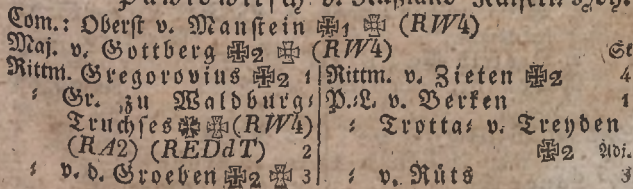 Com.: Oberſt v. Manſtein ✠1 ✠ (RW4)
Maj. v. Gottberg ✠2 ✠ (RW4)
Rittm. Gregorovius ✠2 1
⸗ Gr. zu Waldburg⸗
Truchſes ✠ ✠ (RW4)
(RA2) (REDdT) 2
⸗ v. d. Groeben ✠2 ✠ 3
St
Rittm. v. Zieten ✠2 4
P.⸗L. v. Berken 1
⸗ Trotta⸗ v. Treyden
✠2 Adj.
⸗ v. Rüts 3